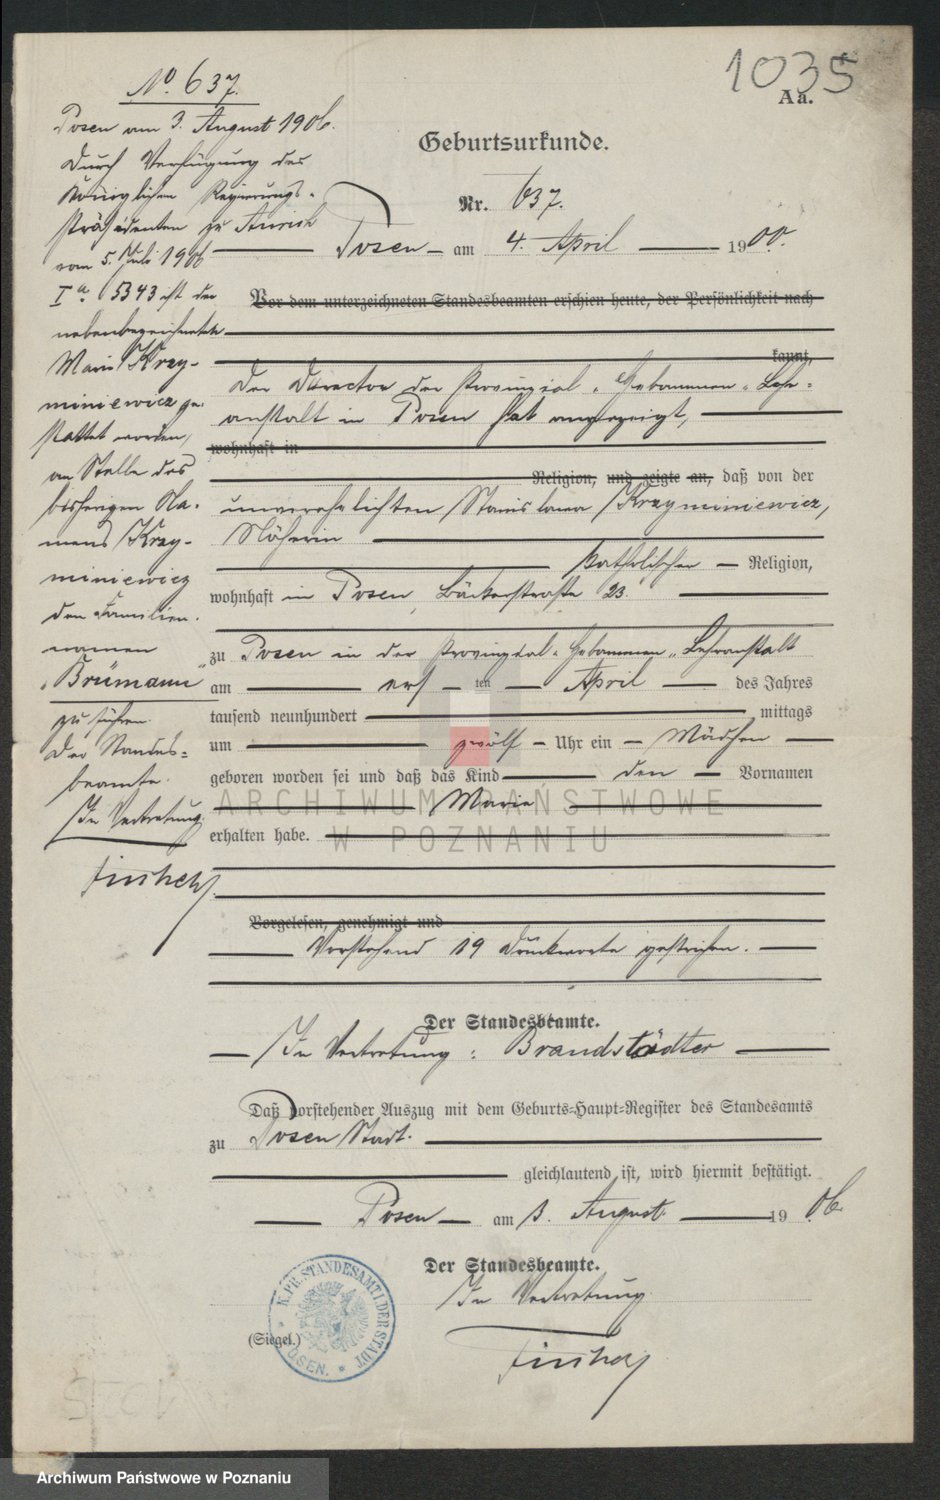 1035
Aa.
No. 637.
Posen am 3. August 1906.
Durch Verfügung des
Königlichen Regierungs-
präsidenten zu Aurich
vom 5. Juli 1906
Ia 5343 ist der
nebenbezeichneten
Marie Kray-
miniewicz ge-
stattet worden,
an Stelle des
bisherigen Na-
mens Kray-
miniewicz
den Familien-
namen
"Brümann"
zu führen.
Der Standes-
beamte.
In Vertretung
Geburtsurkunde.
Nr. 637.
Posen am 4. April 1900.
Vor dem unterzeichneten Standesbeamten erschien heute, der Persönlichkeit nach
kannt,
Der Director der Provinzial-Hebammen-Lehr-
anstalt in Posen hat angezeigt,
wohnhaft in
Religion, und zeigte an, daß von der
unverehelichten Stanislawa Krayminiewicz,
Näherin
katholischer Religion,
wohnhaft in Posen, Bäckerstraße 23
zu Posen in der Provinzial-Hebammen-Lehranstalt
am ersten April des Jahres
tausend neunhundert mittags
um zwölf Uhr ein Mädchen
geboren worden sei und daß das Kind den Vornamen
Marie
ARCHIWUM PAŃSTWOWE
erhalten habe.
W POZNANIU
Vorgelesen, genehmigt und
Vorstehend 19 Druckworte gestrichen.
Der Standesbeamte.
In Vertretung: Brandstädter
Daß vorstehender Auszug mit dem Geburts-Haupt-Register des Standesamts
zu Posen Stadt.
gleichlautend ist, wird hiermit bestätigt.
Posen am 3. August 1906.
Der Standesbeamte.
In Vertretung
(Siegel.)
K. PR. STANDESAMT I DER STADT
POSEN.
Archiwum Państwowe w Poznaniu